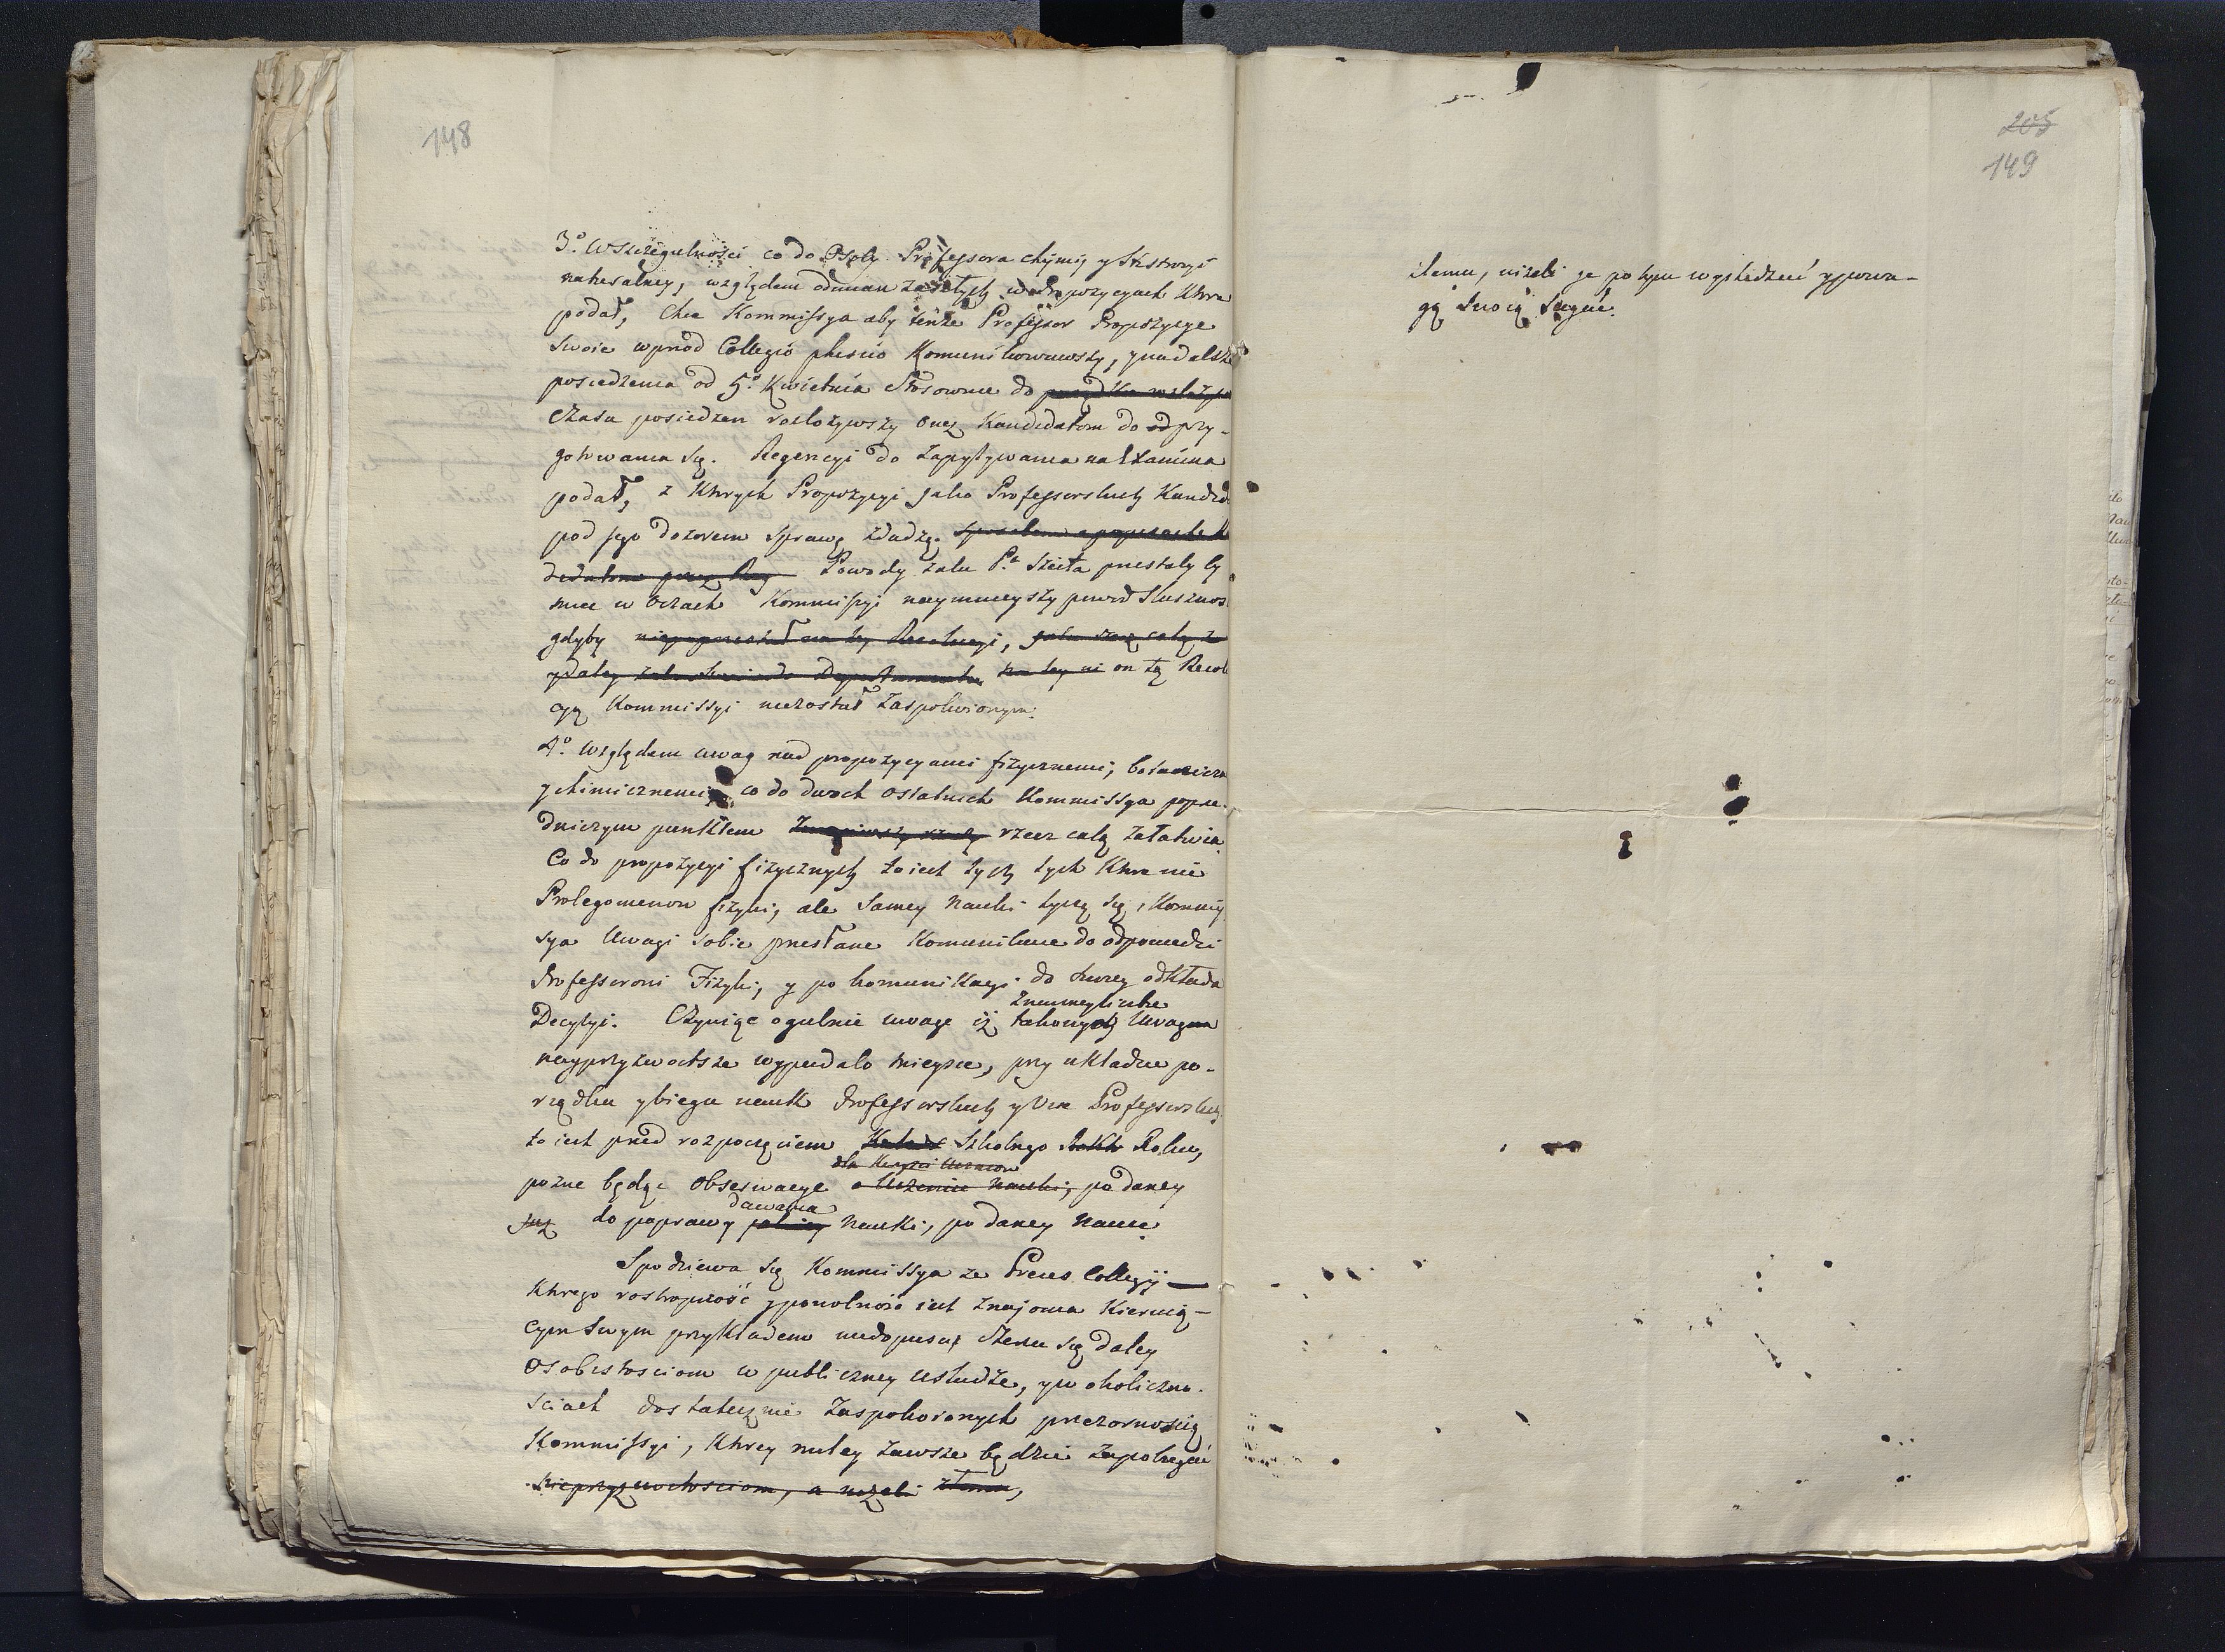 148
3º. Wszczegulności co do Osoby Professora chymij y Historyi
naturalney, względem odmian zaszłych w Propozycyach które
podał, Chce Kommissya aby tenże Professor Propozycye
swoie wprzod Collegio phisico Komunikowawszy, y na dalsze
posiedzenia od 5º. Kwietnia stosownie do porządku
czasu posiedzen rozłożywszy onez Kandidatom do od przy-
gotowania się. Regencyi do zapytywania na Examina
podał, z których Propozycyi jako Professorskich Kandid
pod jego dozorem sprawę zdadzą.
Powody żalu P. Szeita przestały by
miec w oczach Kommissyi naymnieyszy powod słusznos
gdyby nieprzestał na tey Rezolucyi, on tą Rezol
cyą Kommissyi niezostał zaspokoionym.
4º. Względem uwag nad propozycyami fizycznemi, botaniczn
y chimicznemi, co do dwoch ostatnich Kommissya poprze-
dniczym punktem rzecz całą załatwia.
Co do propozycyi fizycznych to iest tych tych które nie
Prolegomenow fizyki, ale samey nauki tyczą się, Kommis
sya Uwagi sobie przesłane Komunikuie do odpowiedzi
Professorowi Fizyki, y po komunikacyi do swoiey odkłada
Decyzyi. Czyniąc ogulnie uwagę iż takowych Uwag
nayprzyzwoitsze wypadało mieysce, przy układzie po-
rządku y biegu nauk Professorskich y Vice Professorskich
to iest przed rozpoczęciem Szkolnego Roku,
dla Korzysci Uczniow
pozne będąc obserwacye o Uczenie nauki, po daney
dawania
Już do poprawy nauki, po daney nauce.
Spodziewa się Kommissya ze Prezes Collegij
którego roztropność y powolność iest znajoma kieruią-
cym swym przykładem niedopuści szerzenia się daley
osobistosciom w publiczney usłudze, y w okoliczno-
sciach dostatecznie zaspokoionych przezornością
Kommissyi, którey miley zawsze będzie zapobiegać
nieprzyzwoitosciom, a niżeli złemu,
205
149
złemu, niżeli ge potym wyśledzać y powa-
gą swoią